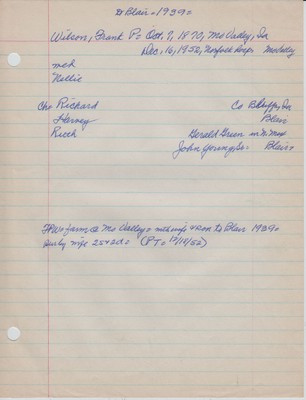 to Blair = 1939=
Wilson, Frank P= Oct, 9, 1870, Mo Valley, Ia
Dec, 16, 1952, Norfolk Hosps Mo Valley
med
Nellie
Cho Richard Co Bluffs, Ia
Harvey Blair
Ruth Gerald Green in N. Mex
John Young Sr= Blair=
FPW= farm @ Mo Valley= with wife & son to Blair 1939=
Surly wife 2 s 4 2 d= (PT= 12/18/52)